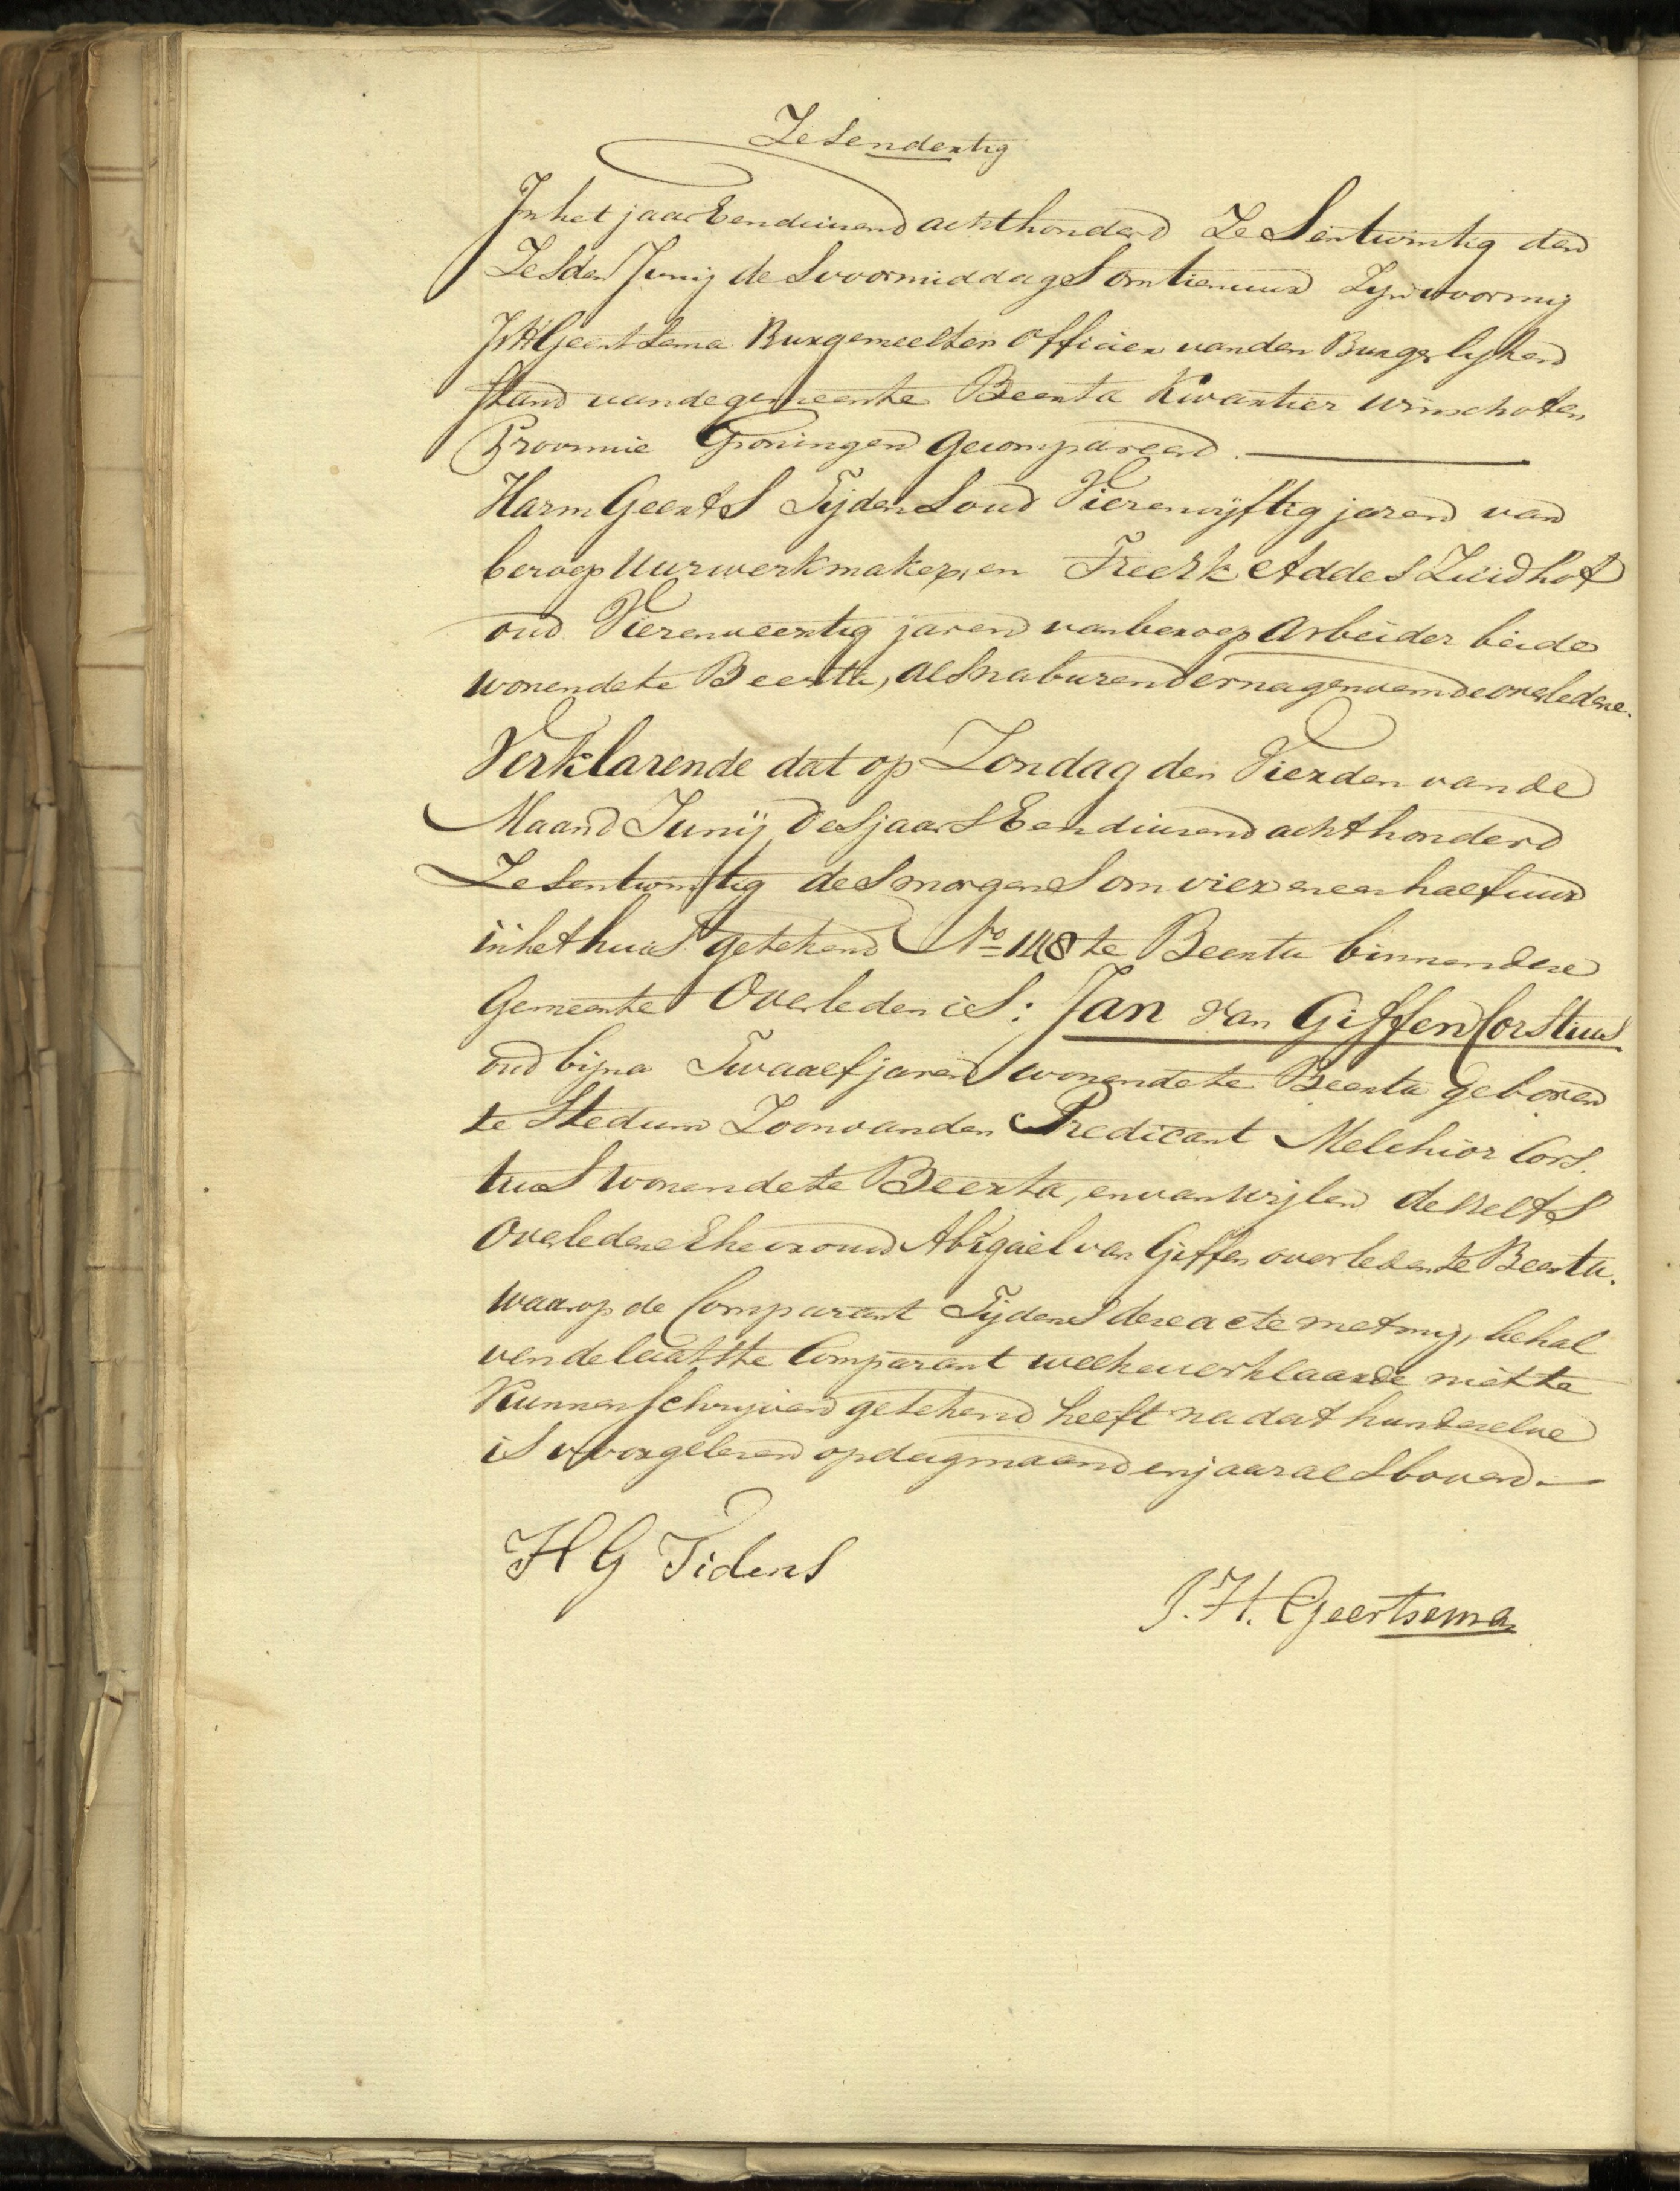 Zesendertig
In het jaar Eenduizend achthonderd Zesentwintig den
Zesden Junij des voormiddags om tien uur Zijn voor mij
J.H. Geertsema Burgemeester Officier van den Burgerlijken
Stand van de gemeente Beerta Kwartier Winschoten
Provincie Groningen gecompareerd.
Harm Geerts Tijdens oud Vierenvijftig jaren van
beroep Uurwerkmaker, en Freerk Addes Zuidhof
oud Vierenveertig jaren van beroep Arbeider beide
wonende te Beerta, als naburen der nagenoemde overledene.
Verklarende dat op Zondag den Vierden van de
Maand Junij des jaars Eenduizend achthonderd
Zesentwintig des morgens om vier en een half uur
in het huis getekend No 148 te Beerta binnen deze
Gemeente Overleden is: Jan van Giffen Corstius
oud bijna Twaalf jaren wonende te Beerta geboren
te Stedum Zoon van den Predicant Melchior Cors.
tius wonende te Beerta, en van wijlen deszelfs
Overledene Ehevrouw Abigaël van Giffen overleden te Beerta.
waarop de Comparant Tijdens deze acte met mij, behal
ven de laatste Comparant welke verklaarde niet te
Kunnen Schrijven getekend heeft na dat hun dezelve
is voorgelezen op dag maand en jaar als boven.
H G Tidens
J. H. Geertsema